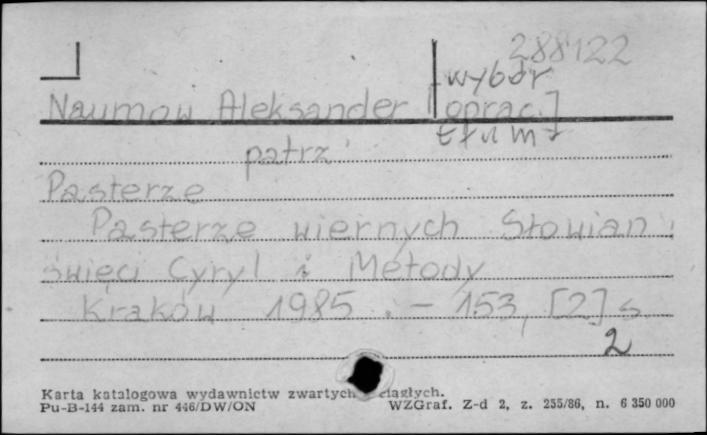 288122
[wybór
Naumow Aleksander oprac.]
tłum
patrz
Pasterze
Pasterze wiernych Słowian :
święci Cyryl i Metody
Kraków 1985 . – 153, [2] s.
2
Karta katalogowa wydawnictw zwartych ciągłych.
Pu-B-144 zam. nr 446/DW/ON WZGraf. Z-d 2, z. 255/86, n. 6 350 000